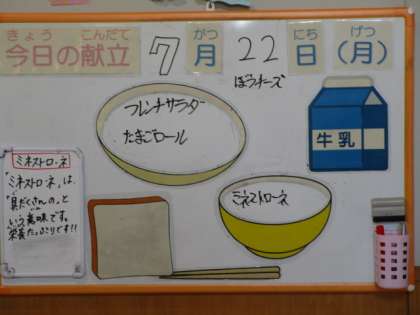 きょう こんだて がつ にち げつ
今日の献立 7月 22日(月)
ぼうチーズ
フレンチサラダ
たまごロール
牛乳
ミネストローネ
ミネストローネ
「ミネストローネ」は、
「具だくさんの」と
いう意味です。
栄養たっぷりです!!